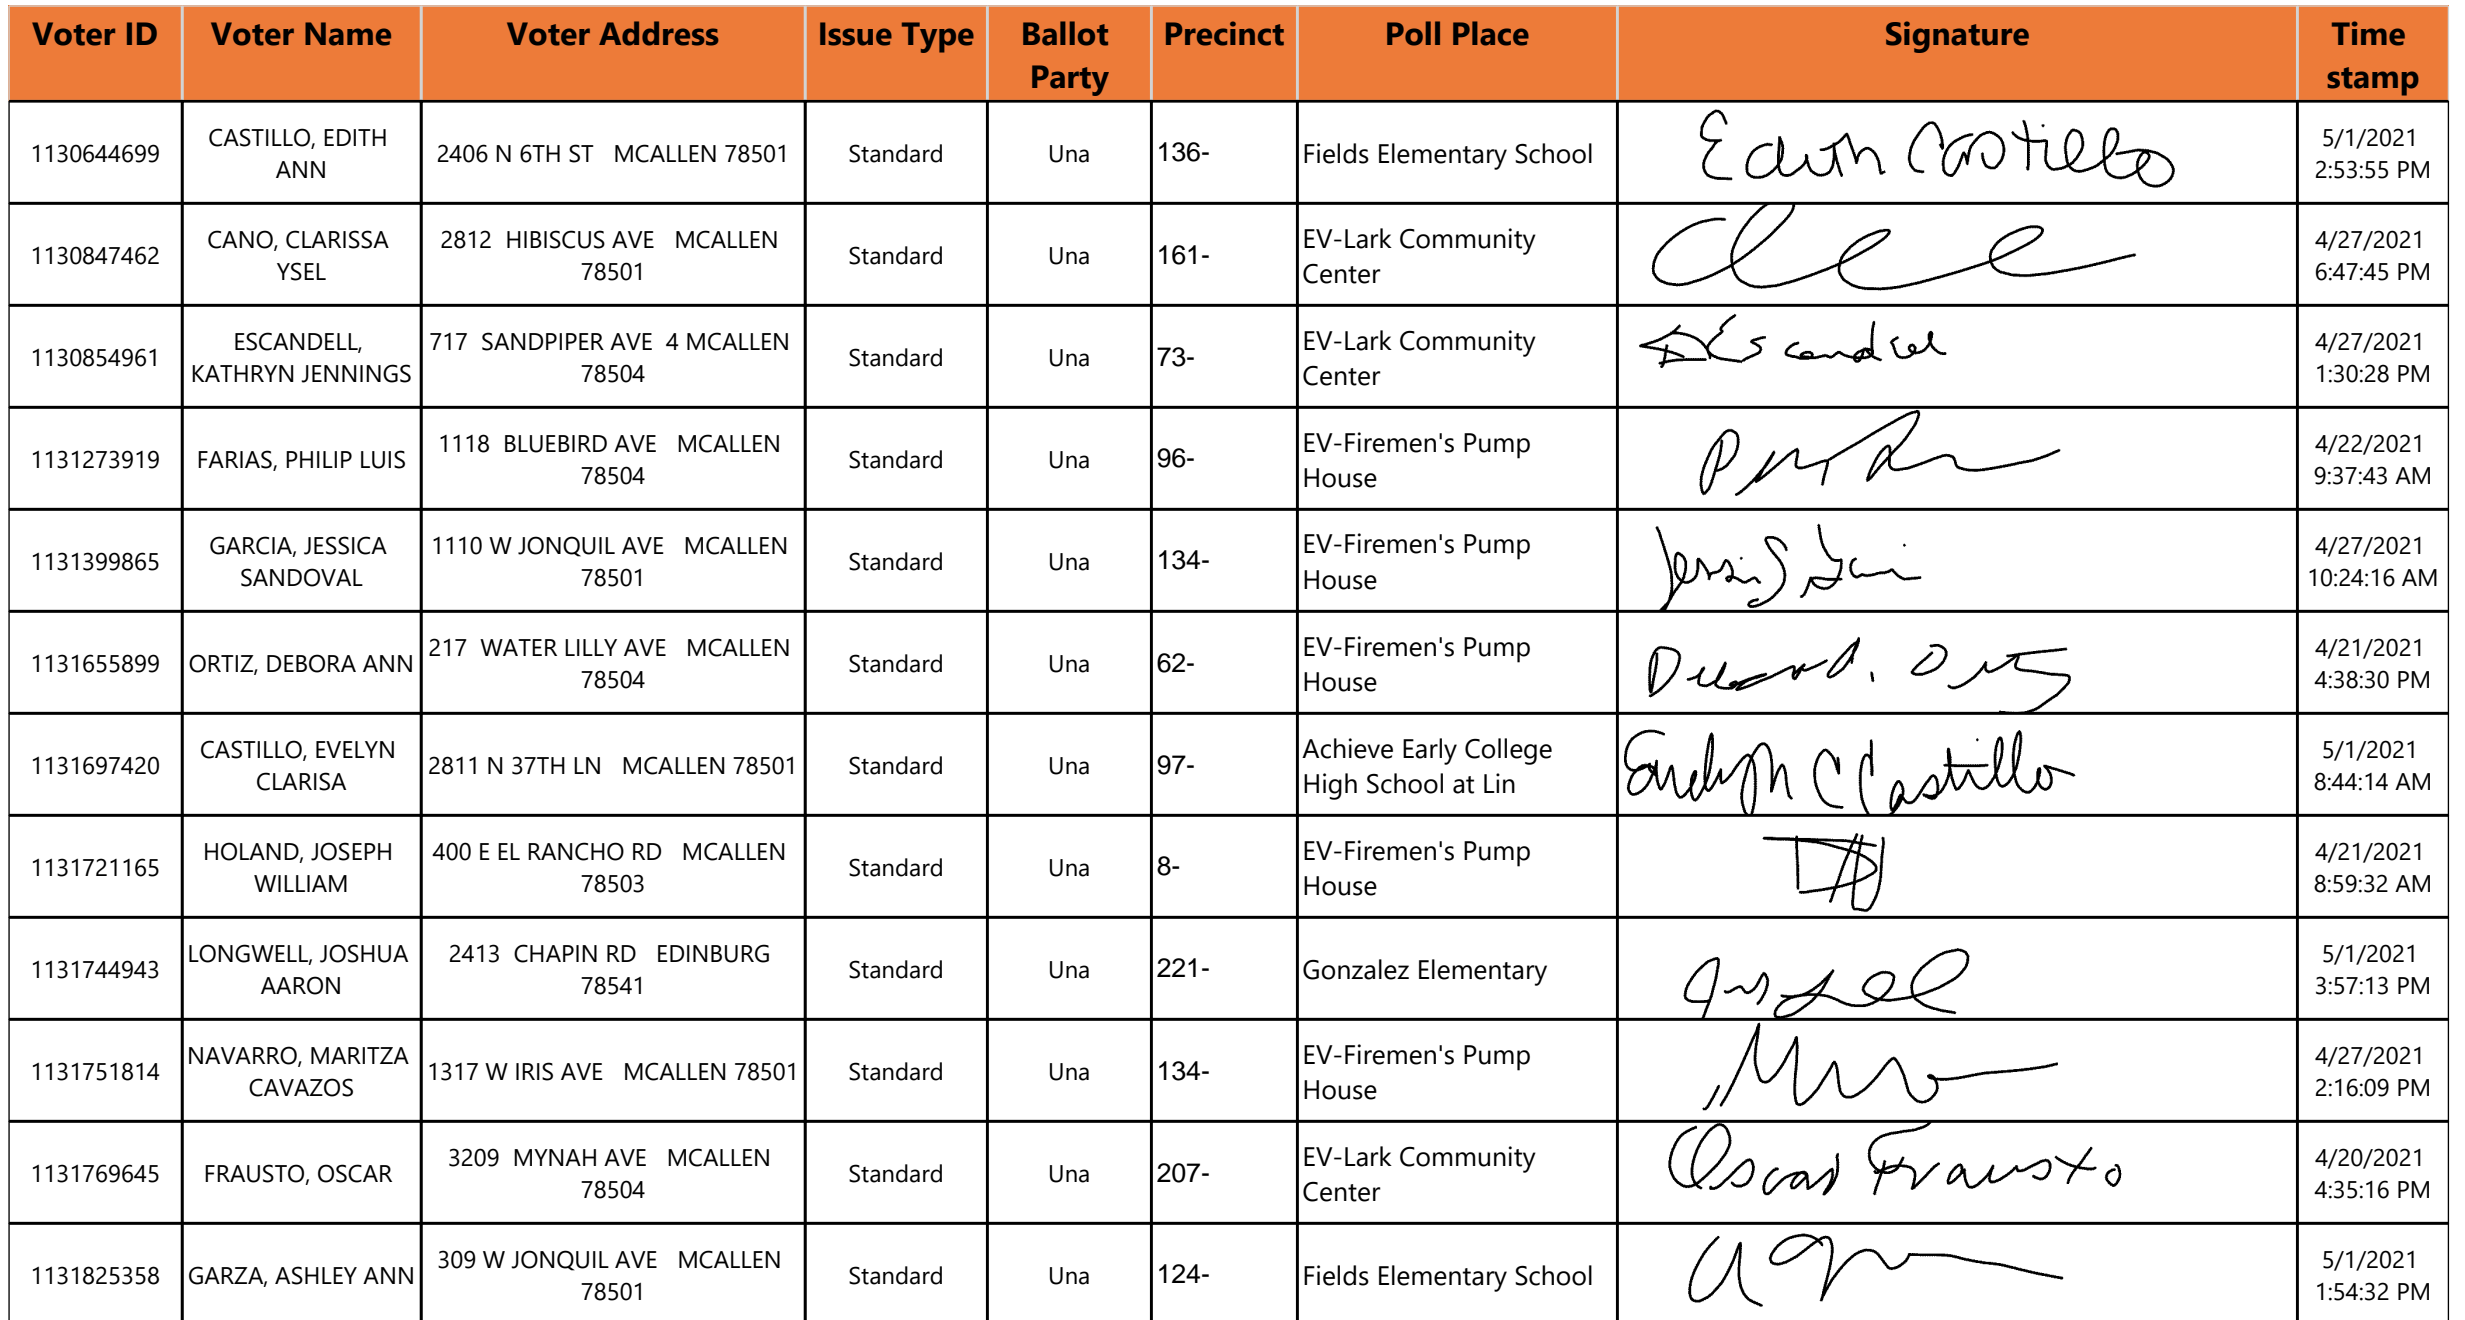 Voter ID Voter Name Voter Address Issue Type Ballot Party Precinct Poll Place Signature Time stamp
1130644699 CASTILLO, EDITH ANN 2406 N 6TH ST MCALLEN 78501 Standard Una 136- Fields Elementary School Edith Castillo 5/1/2021 2:53:55 PM
1130847462 CANO, CLARISSA YSEL 2812 HIBISCUS AVE MCALLEN 78501 Standard Una 161- EV-Lark Community Center 4/27/2021 6:47:45 PM
1130854961 ESCANDELL, KATHRYN JENNINGS 717 SANDPIPER AVE 4 MCALLEN 78504 Standard Una 73- EV-Lark Community Center 4/27/2021 1:30:28 PM
1131273919 FARIAS, PHILIP LUIS 1118 BLUEBIRD AVE MCALLEN 78504 Standard Una 96- EV-Firemen's Pump House 4/22/2021 9:37:43 AM
1131399865 GARCIA, JESSICA SANDOVAL 1110 W JONQUIL AVE MCALLEN 78501 Standard Una 134- EV-Firemen's Pump House 4/27/2021 10:24:16 AM
1131655899 ORTIZ, DEBORA ANN 217 WATER LILLY AVE MCALLEN 78504 Standard Una 62- EV-Firemen's Pump House 4/21/2021 4:38:30 PM
1131697420 CASTILLO, EVELYN CLARISA 2811 N 37TH LN MCALLEN 78501 Standard Una 97- Achieve Early College High School at Lin Evelyn C Castillo 5/1/2021 8:44:14 AM
1131721165 HOLAND, JOSEPH WILLIAM 400 E EL RANCHO RD MCALLEN 78503 Standard Una 8- EV-Firemen's Pump House 4/21/2021 8:59:32 AM
1131744943 LONGWELL, JOSHUA AARON 2413 CHAPIN RD EDINBURG 78541 Standard Una 221- Gonzalez Elementary 5/1/2021 3:57:13 PM
1131751814 NAVARRO, MARITZA CAVAZOS 1317 W IRIS AVE MCALLEN 78501 Standard Una 134- EV-Firemen's Pump House 4/27/2021 2:16:09 PM
1131769645 FRAUSTO, OSCAR 3209 MYNAH AVE MCALLEN 78504 Standard Una 207- EV-Lark Community Center Oscar Frausto 4/20/2021 4:35:16 PM
1131825358 GARZA, ASHLEY ANN 309 W JONQUIL AVE MCALLEN 78501 Standard Una 124- Fields Elementary School 5/1/2021 1:54:32 PM